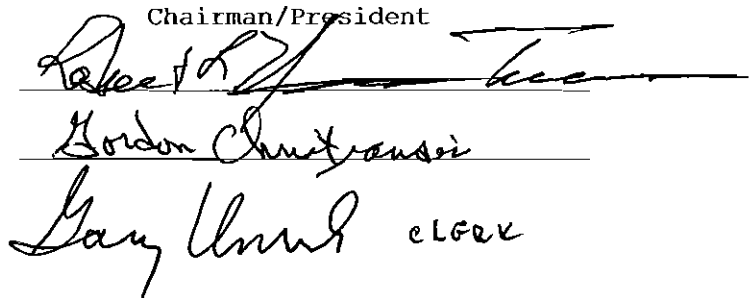 Chairman/President
Robert R
Gordon Christiansen
Gary CLERK